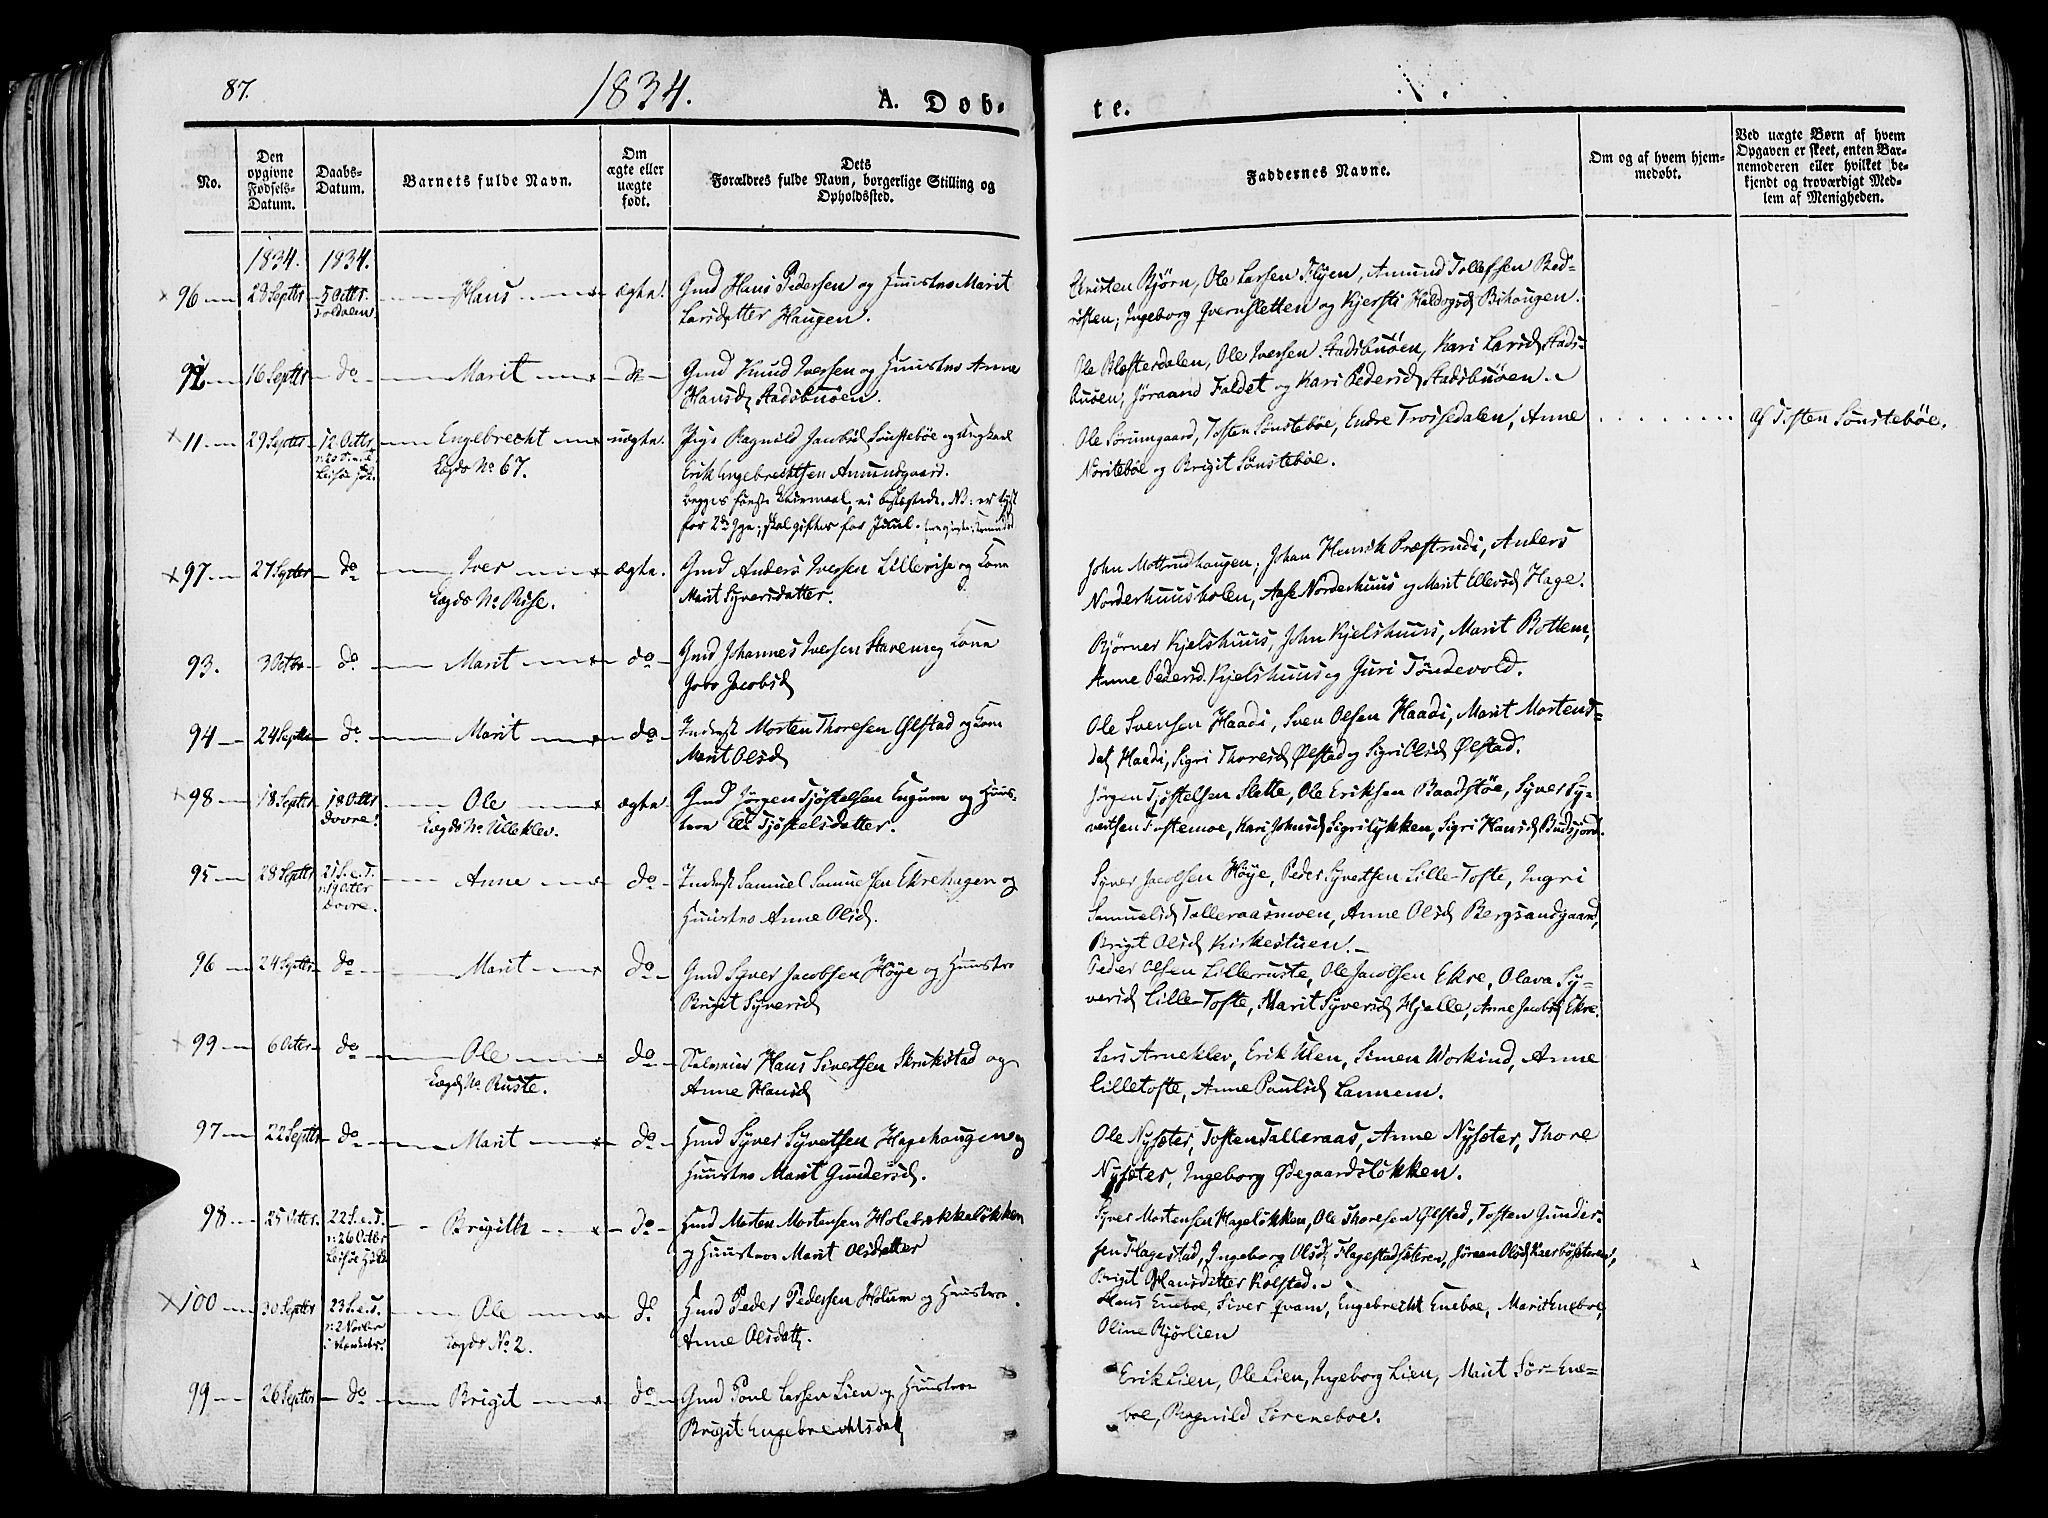 87.
1834.
A. Døb-
te.
No.
Den opgivne Fødsels-Datum.
Daabs-Datum.
Barnets fulde Navn.
Om ægte eller uægte født.
Dets Forældres fulde Navn, borgerlige Stilling og Opholdssted.
Faddernes Navne.
Om og af hvem hjem-
medøbt.
Ved uægte Børn af hvem
Opgaven er skeet, enten Bar-
nemoderen eller hvilket be-
kjendt og troværdigt Med-
lem af Menigheden.
1834. 1834.
96 28 Septbr 5 Octbr. Hans ægte. Gmd Hans Pedersen og Huustroe Marit
Larsdatter Haugen.
Christen Bjørn, Ole Larsen Flyen, Amund Tollefsen
Ingeborg Qvernsletten og Kjersti Bihaugen.
92 16 Septbr do Marit Gmd Knud Iversen og Huustroe Anne
Hansd Stadsbuøen.
Ole Blesterdalen, Ole Iversen Stadsbuøen, Kari Larsd Stads-
buøen, Jøraand Faldet og Kari Pedersd Stadsbuøen.
11 29 Septbr 12 Octbr Engebrecht uægte. Pige Ragnild Jacobsd Sønstebøe og Ungkarl
Lægds No 67. Erik Engebrechtsen Amundgaard.
for 2den Gge; skal giftes for Juul.
Ole Sørumgaard, Tosten Sønstebøe, Endre Trosedalen, Anne
Noritebøe og Brigit Sønstebøe.
af Tosten Sønstebøe.
97 27 Septbr do Iver ægte. Gmd Anders Iversen Lillerise og Kone
Lægds No Rise. Marit Syversdatter.
John Mottrudhaugen, Johan Henrik Præstrudi, Anders
Norderhuusholen, Aase Norderhuus og Marit Ellevsd Hage.
93. 3 Octbr do Marit do Gmd Johannes Iversen Stavem og Kone
Goro Jacobsd
Bjørner Kjelshuus, John Kjelshuus, Marit Bottem,
Anne Pedersd. Kjelshuus og Guri Tøndevold.
94 24 Septbr do Marit do Inderst Morten Thoresen Ølstad og Kone
Marit Olsd
Ole Svensen Haadi, Sven Olsen Haadi, Marit Mortens-
dat Haadi, Sigri Thoresd Ølstad og Sigri Olsd Ølstad.
98 18 Septbr 18 Octbr Ole ægte. Gmd Jørgen Tjøstelsen Engum og Huus-
Dovre. Lægds No Ulleklev. troe Eli Tjøstelsdatter.
Jørgen Tjøstelsen Slette, Ole Eriksen Baadstøe, Syver Sy-
vertsen Toftemoe, Kari Johnsd Sigriløkken, Sigri Hansd Budsjord.
95 28 Septbr 21 S.e.T. Anne do Inderst Samuel Samuelsen Ekrehagen og
n: 19 Octbr Huustroe Anne Olsd.
Dovre.
Syver Jacobsen Høye, Peder Syvertsen Lille-Tofte, Ingri
Samuelsd Talleraasmoen, Anne Olsd Bergsandgaard,
Brigit Olsd Kirkestuen.
96 24 Septbr do Marit do Gmd Syver Jacobsen Høye og Huustroe
Brigit Syversd
Peder Olsen Lilleruste, Ole Jacobsen Ekre, Olava Sy-
versd Lille-Tofte, Marit Syversd Hjelle, Anne Jacobsd Ekre.
99 6 Octbr do Ole do Selveier Hans Sivertsen Skrukstad og
Lægds No Ruste. Anne Hansd
Lars Arneklev, Erik Ulen, Simen Workind, Anne
Lilletofte, Anne Paulsd Lannem.
97 22 Septbr do Marit do Hmd Syver Syvertsen Hagehaugen og
Huustroe Marit Gundersd.
Ole Nysæter, Tosten Talleraas, Anne Nysæter, Thore
Nysæter, Ingeborg Ødegaardsløkken.
98 25 Octbr. 22 S.e.T. Brigith do Hmd Morten Mortensen Holebækkeløkken
n: 26 Octbr og Huustroe Marit Olsdatter
Syver Mortensen Hageløkken, Ole Thoresen Ølstad, Tosten Gunder-
sen Flagestad, Ingeborg Olsd Flagestadsæteren, Jøraan Olsd
Brigit Hansdatter Kolstad.
100 30 Septbr 23 S.e.T. Ole do Hmd Peder Pedersen Holum og Huustroe
n: 2 Novbr Lægds No 2. Anne Olsdatt.
Hans Eneboe, Siver Qvam, Engebrecht Eneboe, Marit Eneboe,
Oline Bjørlien
99 26 Septbr do Brigit do Gmd Povl Larsen Lien og Huustroe
Brigit Engebrechtsdatt
Erik Lien, Ole Lien, Ingeborg Lien, Marit Sør-Ene-
boe, Ragnild Søreneboe.